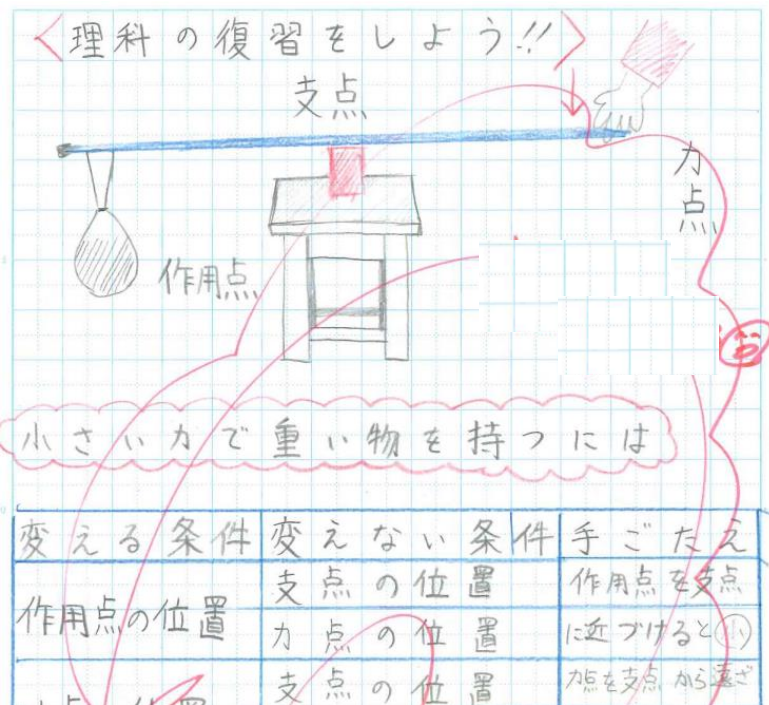 <理科の復習をしよう!!>
支点
力点
作用点
小さい力で重い物を持つには
変える条件 変えない条件 手ごたえ
作用点の位置 支点の位置 作用点を支点
力点の位置 に近づけると小
支点の位置 力点を支点から遠ざ